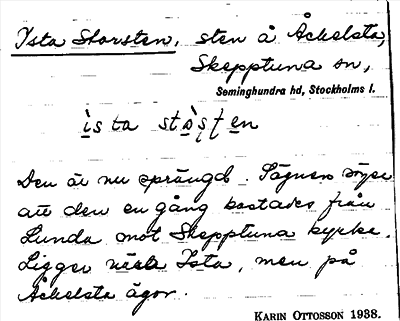 Ista Storsten, sten å Åckelsta,
Skepptuna sn,
Seminghundra hd, Stockholms l.
ista sto̩s̩t̩en
Den är nu sprängd. Sägnen säger
att den en gång kastades från
Lunda mot Skepptuna kyrka.
Ligger nära Ista, men på
Åckelsta ägor.
KARIN OTTOSSON 1938.